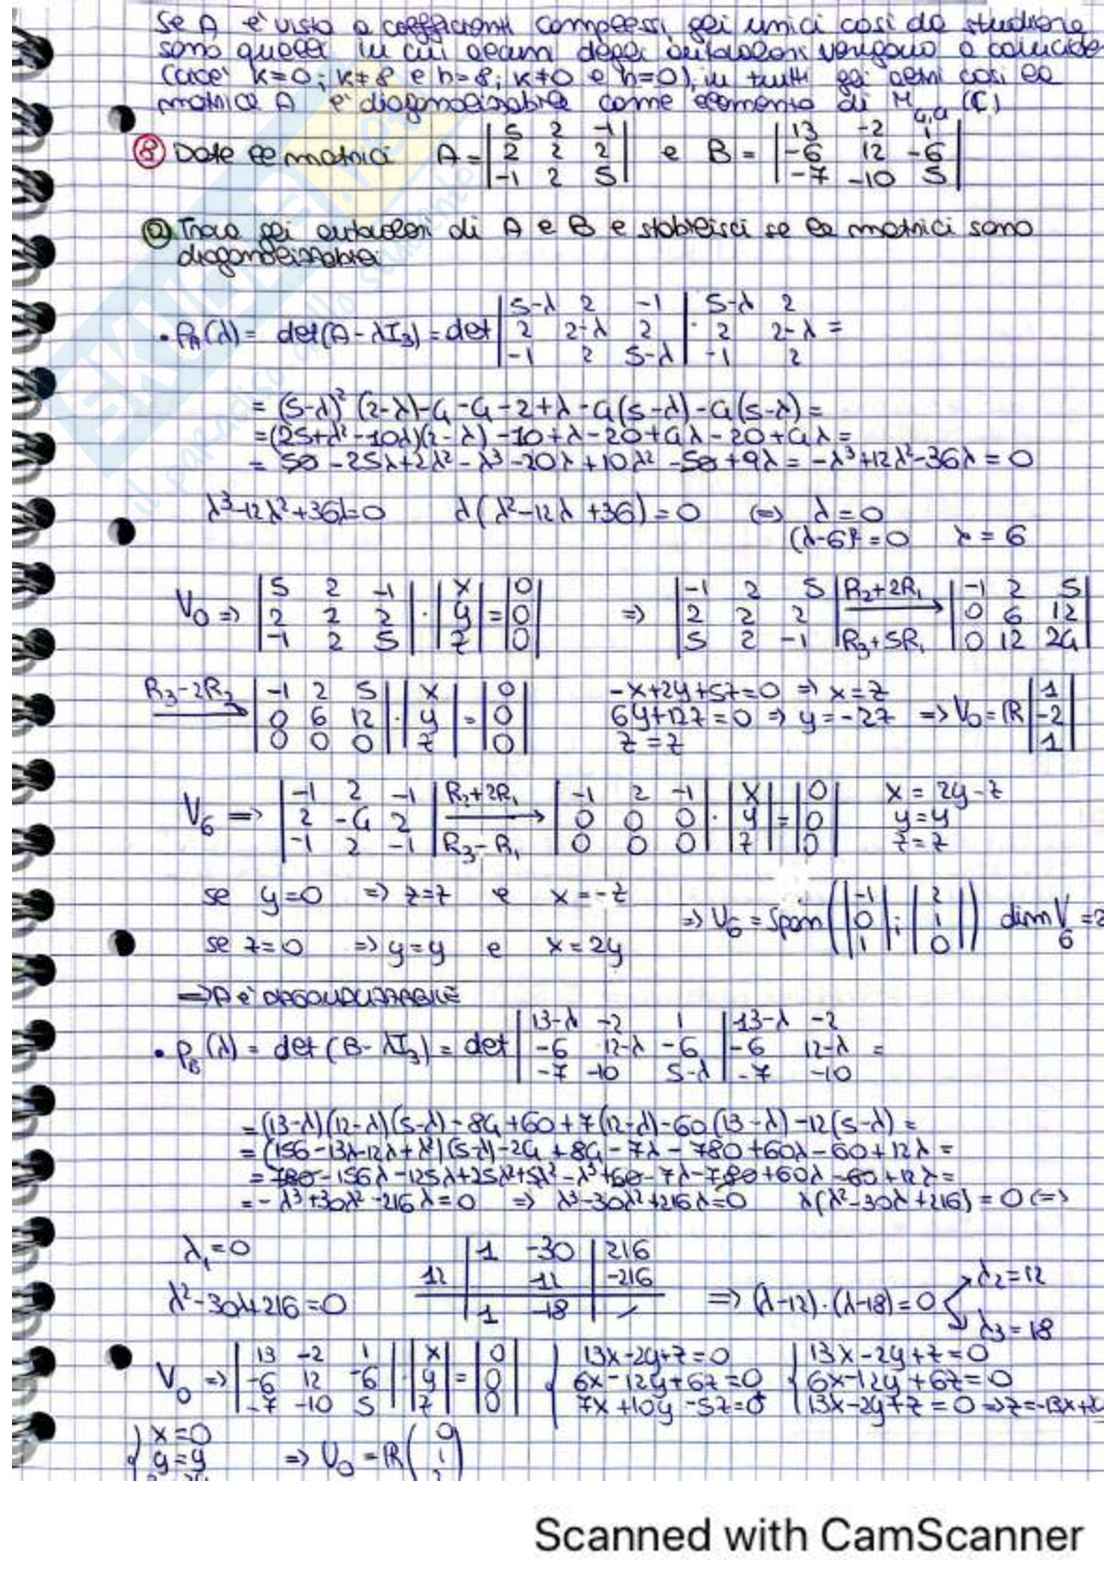 Se A è visto a coefficienti complessi, gli unici casi da studiare
sono quelli in cui alcuni degli autovalori vengono a coincide
(cioè k=0; k≠8 e h=8; k≠0 e h=0), in tutti gli altri casi la
matrice A è diagonalizzabile come elemento di M₄,₄ (C)
⑧ Date le matrici A = |5 2 -1| e B = |13 -2 1|
|2 2 2| |-6 12 -6|
|-1 2 5| |-7 -10 5|
ⓐ Trova gli autovalori di A e B e stabilisci se le matrici sono
diagonalizzabili
• P_A(λ) = det(A-λI₃) = det |5-λ 2 -1| 5-λ 2
|2 2-λ 2| 2 2-λ =
|-1 2 5-λ| -1 2
= (5-λ)² (2-λ)-4-4-2+λ-4(5-λ)-4(5-λ) =
= (25+λ²-10λ)(2-λ)-10+λ-20+4λ-20+4λ =
= 50-25λ+2λ²-λ³-20λ+10λ²-50+9λ = -λ³+12λ²-36λ = 0
λ³-12λ²+36λ=0 λ(λ²-12λ+36)=0 ⇔ λ=0
(λ-6)²=0 λ=6
V₀ ⇒ |5 2 -1| |x| |0| ⇒ |-1 2 5| R₂+2R₁ |-1 2 5|
|2 2 2| · |y| = |0| |2 2 2| → |0 6 12|
|-1 2 5| |z| |0| |5 2 -1| R₃+5R₁ |0 12 24|
R₃-2R₂ → |-1 2 5| |x| |0| -x+2y+5z=0 ⇒ x=z
|0 6 12| · |y| = |0| 6y+12z=0 ⇒ y=-2z ⇒ V₀ = ℝ |1 -2 1|
|0 0 0| |z| |0| z=z
V₆ ⇒ |-1 2 -1| R₂+2R₁ |-1 2 -1| |x| |0| x=2y-z
|2 -4 2| → |0 0 0| · |y| = |0| y=y
|-1 2 -1| R₃-R₁ |0 0 0| |z| |0| z=z
se y=0 ⇒ z=z e x=-z
⇒ V₆ = Span(|-1 0 1| ; |2 1 0|) dim V₆ = 2
se z=0 ⇒ y=y e x=2y
⇒ A è DIAGONALIZZABILE
• P_B(λ) = det(B-λI₃) = det |13-λ -2 1| 13-λ -2
|-6 12-λ -6| -6 12-λ =
|-7 -10 5-λ| -7 -10
= (13-λ)(12-λ)(5-λ)-84+60+7(12-λ)-60(13-λ)-12(5-λ) =
= (156-13λ-12λ+λ²)(5-λ)-24+84-7λ-780+60λ-60+12λ =
= 780-156λ-125λ+25λ²+5λ²-λ³+60-7λ-780+60λ-60+12λ =
= -λ³+30λ²-216λ=0 ⇒ λ³-30λ²+216λ=0 λ(λ²-30λ+216)=0 ⇔
λ₁=0 | 1 -30 | 216
12 | 12 | -216 λ₂=12
λ²-30λ+216=0 | 1 -18 | / ⇒ (λ-12)·(λ-18)=0
λ₃=18
V₀ ⇒ |13 -2 1| |x| |0| { 13x-2y+z=0 { 13x-2y+z=0
|-6 12 -6| |y| = |0| 6x-12y+6z=0 6x-12y+6z=0
|-7 -10 5| |z| |0| 7x+10y-5z=0 13x-2y+z=0 ⇒ z=-13x+
{ x=0
y=y ⇒ V₀ = ℝ (0 1
Scanned with CamScanner